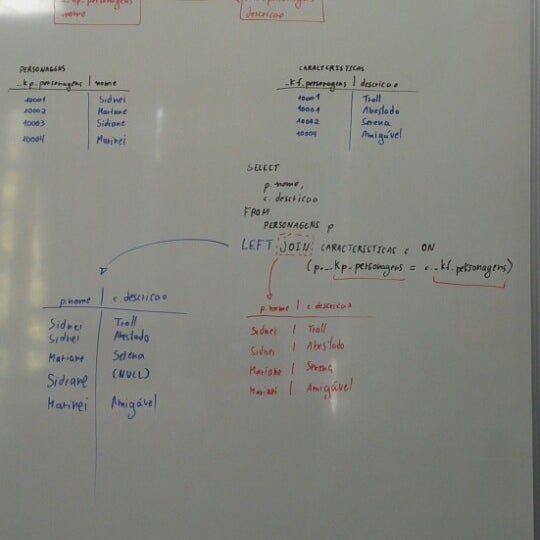 _kp_personagens
nome
descricao
PERSONAGENS
_kp_personagens | nome
10001 Sidnei
10002 Mariane
10003 Sidiane
10004 Marinei
CARACTERISTICAS
_kf_personagens | descricao
10001 Troll
10001 Abestado
10002 Serena
10004 Amigável
SELECT
p.nome,
c.descricao
FROM
PERSONAGENS p
LEFT JOIN CARACTERISTICAS c ON
(p._kp_personagens = c._kf_personagens)
p.nome | c.descricao
Sidnei Troll
Sidnei Abestado
Mariane Serena
Sidiane (NULL)
Marinei Amigável
p.nome | c.descricao
Sidnei | Troll
Sidnei | Abestado
Mariane | Serena
Marinei | Amigável